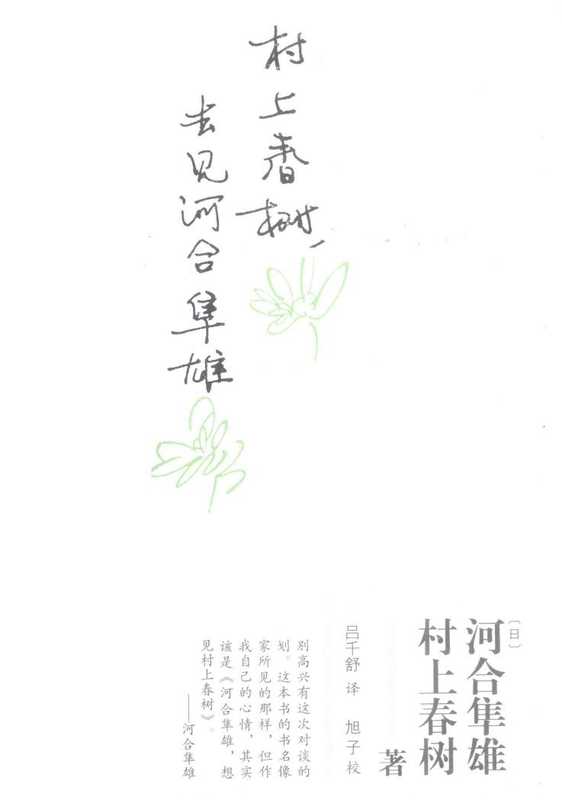 村上春树，
去见河合隼雄
〔日〕
河合隼雄
村上春树
著
吕千舒 译 旭子 校
别高兴有这次对谈的
划。这本书的书名像
家所见的那样，但作
我自己的心情，其实
该是《河合隼雄，想
见村上春树》。
——河合隼雄